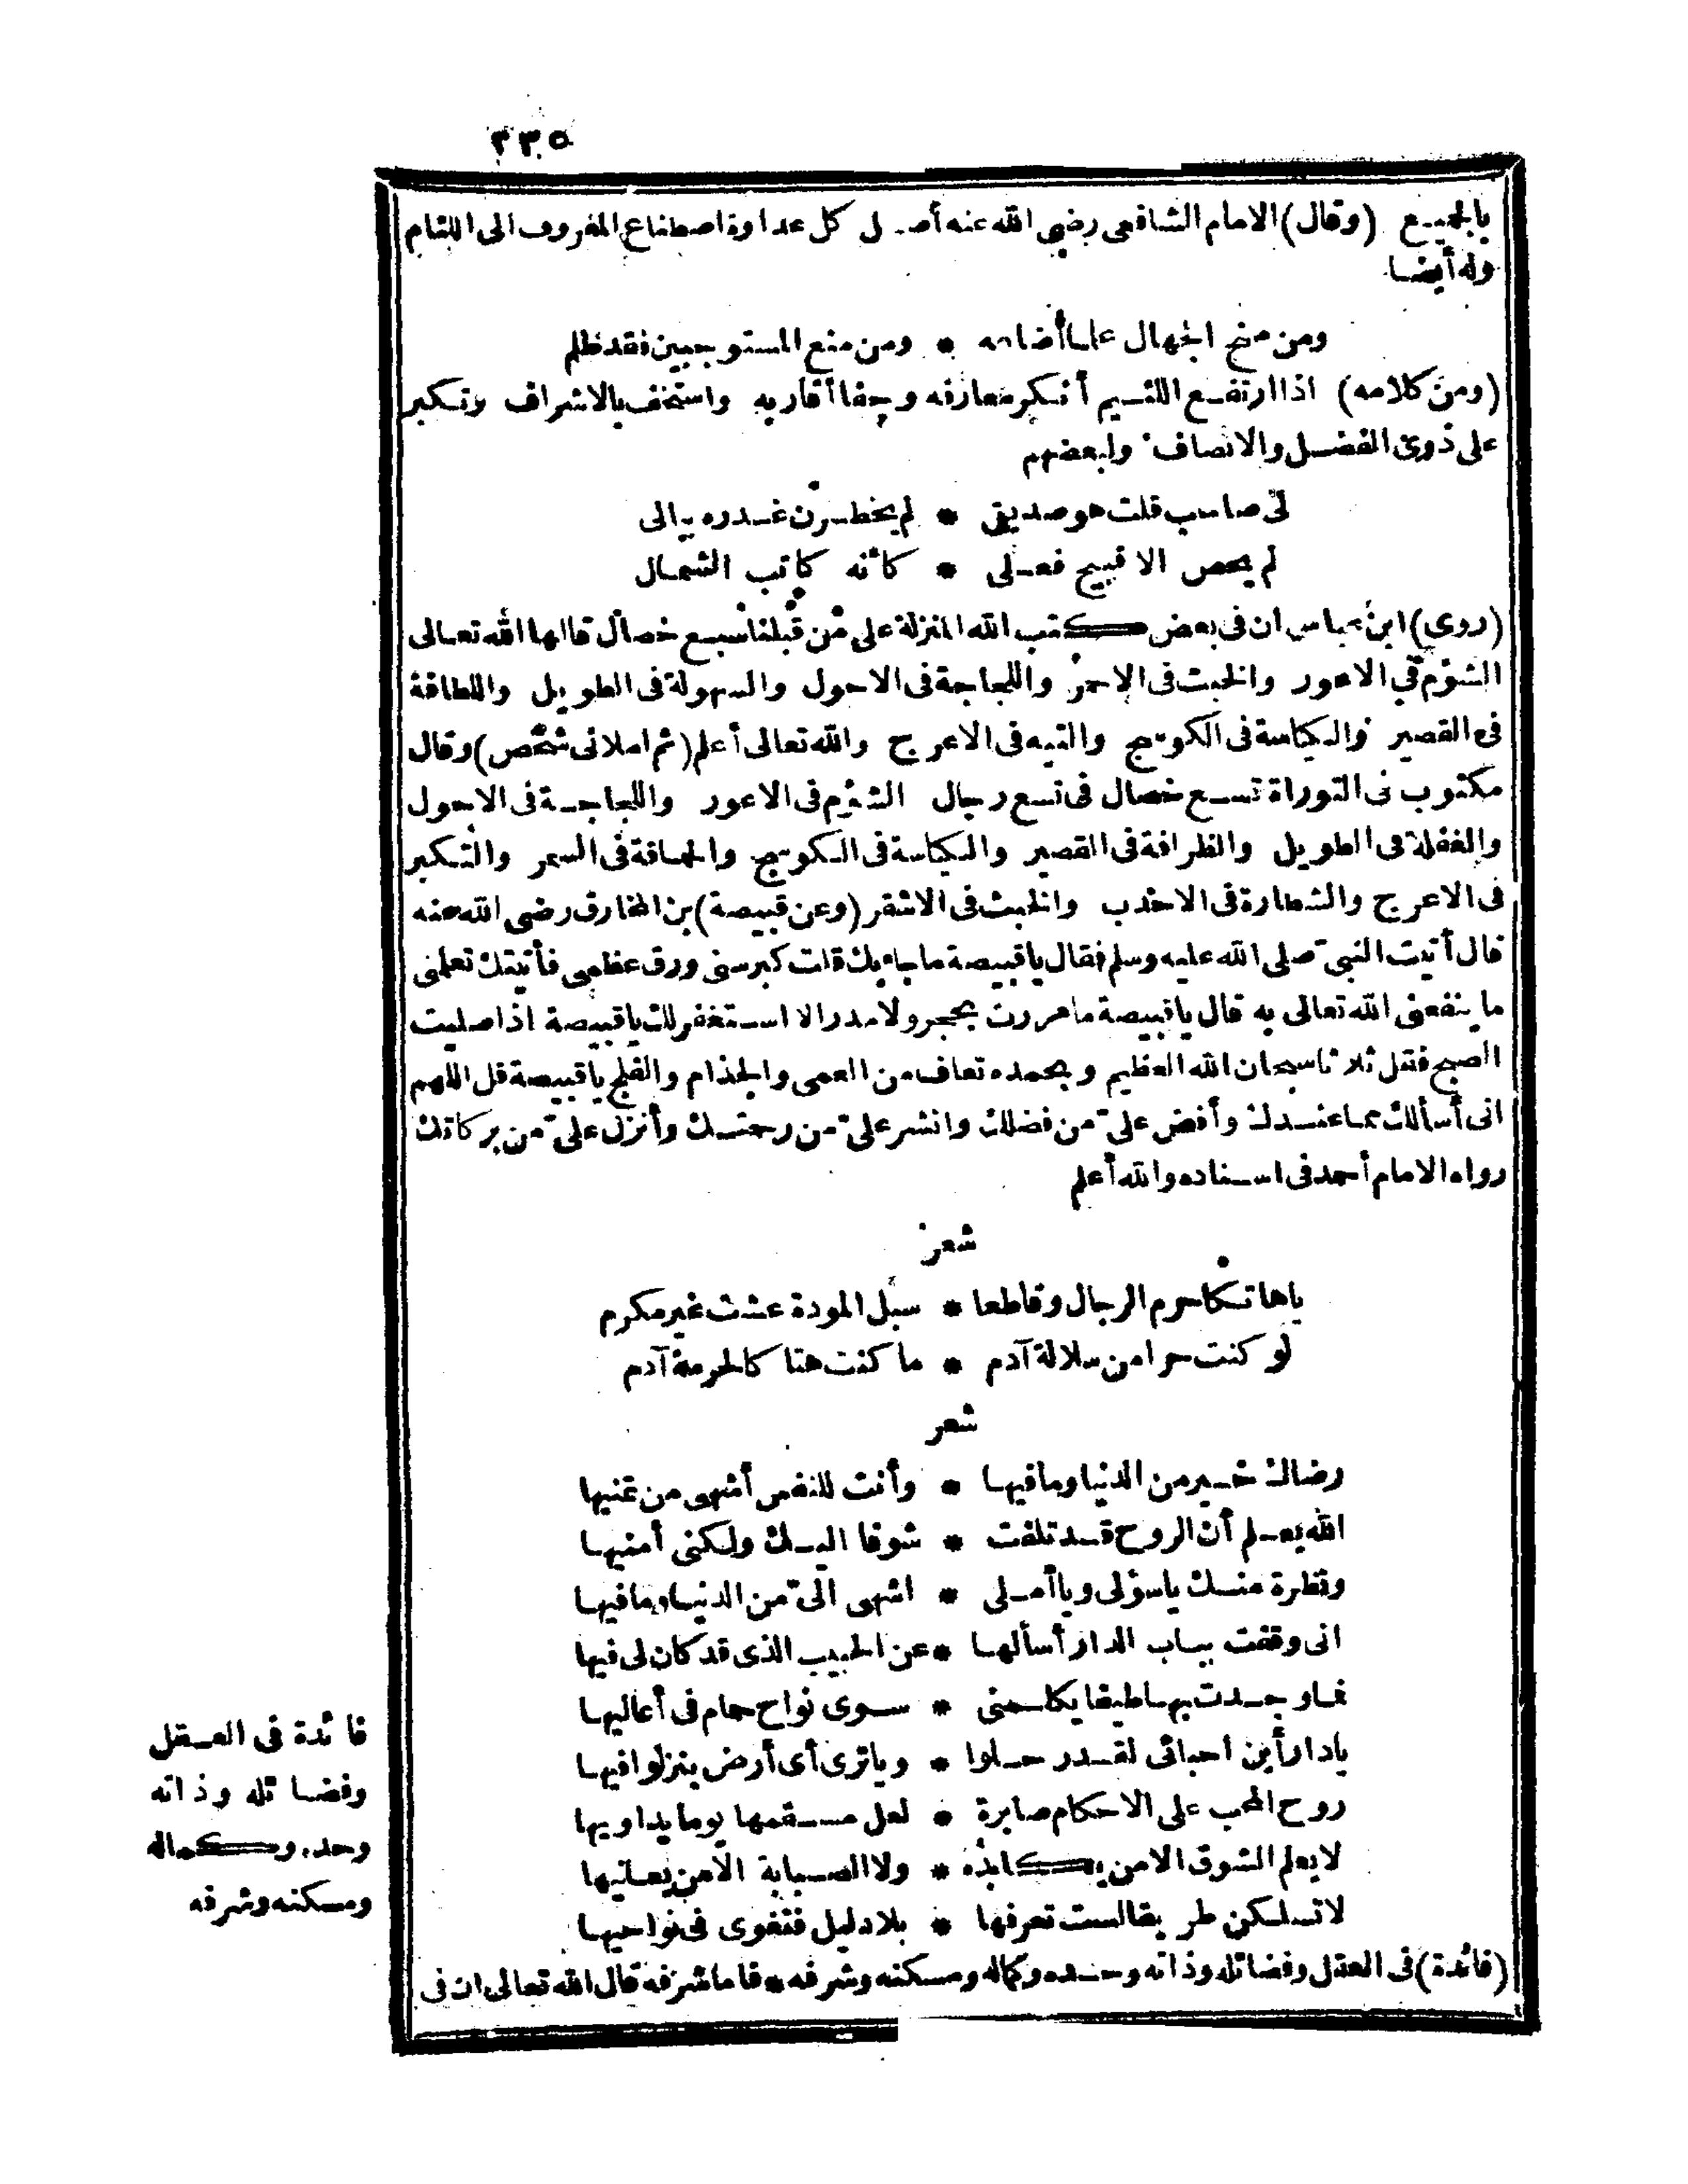 ٣٣٥
بالجميع (وقال) الامام الشافعى رضى الله عنه أصل كل عداوة اصطناع المعروف الى اللئام
وله أيضا
ومن منح الجهال علما أضاعه * ومن منع المستوجبين فقد ظلم
(ومن كلامه) اذا ارتفع اللئيم أنكر معارفه وجفا أقاربه واستخف بالاشراف وتكبر
على ذوى الفضل والانصاف ولبعضهم
لى صاحب قلت هو صديقى * لم يخطرن غدره ببالى
لم يحص الا قبيح فعلى * كأنه كاتب الشمال
(روى) ابن عباس ان فى بعض كتب الله المنزلة على من قبلنا سبع خصال قالها الله تعالى
الشؤم فى الاعور والخبث فى الاحمر واللجاجة فى الاحول والسهولة فى الطويل واللطافة
فى القصير والكياسة فى الكوسج والتيه فى الاعرج والله تعالى أعلم (ثم املانى شخص) وقال
مكتوب فى التوراة تسع خصال فى تسع رجال الشؤم فى الاعور واللجاجة فى الاحول
والغفلة فى الطويل والظرافة فى القصير والكياسة فى الكوسج والحماقة فى السمر والتكبر
فى الاعرج والشطارة فى الاحدب والخبث فى الاشقر (وعن قبيصة) بن المخارق رضى الله عنه
قال أتيت النبى صلى الله عليه وسلم فقال يا قبيصة ما جاء بك قلت كبر سنى ورق عظمى فأتيتك تعلمنى
ما ينفعنى الله تعالى به قال يا قبيصة ما مررت بحجر ولا مدر الا استغفر لك يا قبيصة اذا صليت
الصبح فقل ثلاثا سبحان الله العظيم وبحمده تعاف من العمى والجذام والفلج يا قبيصة قل اللهم
انى أسألك مما عندك وأفض على من فضلك وانشر على من رحمتك وأنزل على من بركاتك
رواه الامام أحمد فى اسناده والله أعلم
شعر
ياهاتكا حرم الرجال وقاطعا * سبل المودة عشت غير مكرم
لو كنت حرا من سلالة آدم * ما كنت هتا كالحرمة آدم
شعر
رضاك خير من الدنيا وما فيها * وأنت للنفس أشهى من تمنيها
الله يعلم أن الروح قد تلفت * شوقا اليك ولكنى أمنيها
ونظرة منك ياسؤلى ويا أملى * اشهى الىّ من الدنيا وما فيها
انى وقفت بباب الدار أسألها * عن الحبيب الذى قد كان لى فيها
فما وجدت بها طيفا يكلمنى * سوى نواح حمام فى أعاليها
يادار أين احبائى لقد رحلوا * وياترى أى أرض ينزلوا فيها
روح المحب على الاحكام صابرة * لعل مسقمها يوما يداويها
لا يعلم الشوق الا من يكابده * ولا الصبابة الا من يعانيها
لا تسلكن طريقا لست تعرفها * بلا دليل فتغوى فى نواحيها
(فائدة) فى العقل وفضائله وذاته وحده وكماله ومسكنه وشرفه * فاما شرفه قال الله تعالى ان فى
فائدة فى العقل
وفضائله وذاته
وحده وكماله
ومسكنه وشرفه